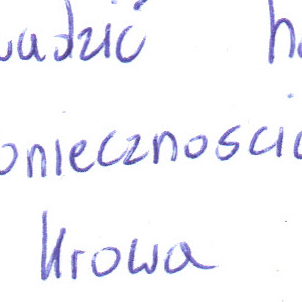 wadzić h
oniecznością
krowa